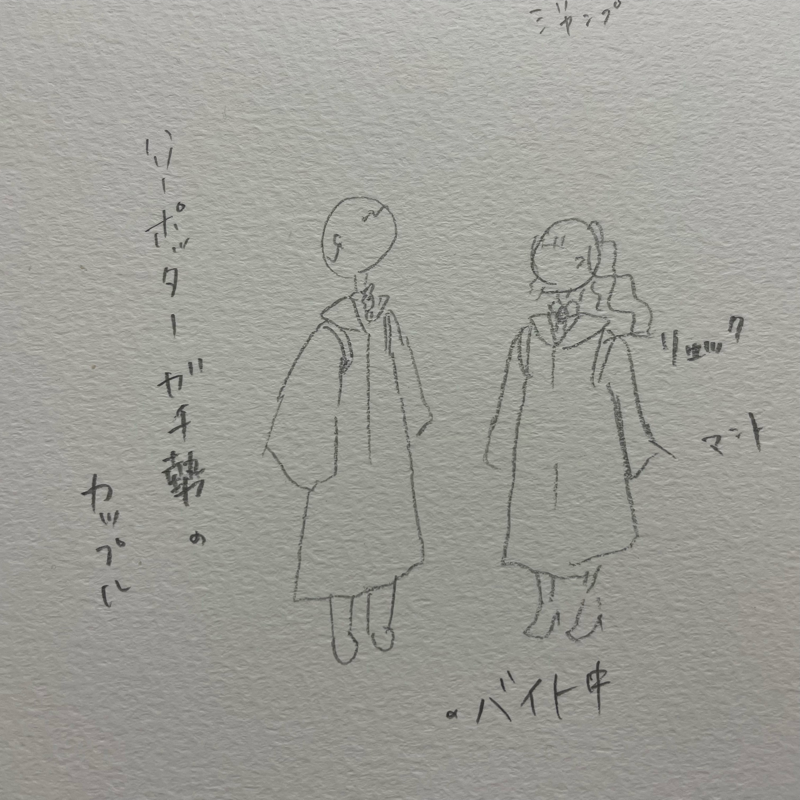 ジャンプ
ハリーポッターガチ勢の
カップル
リュック
マント
バイト中